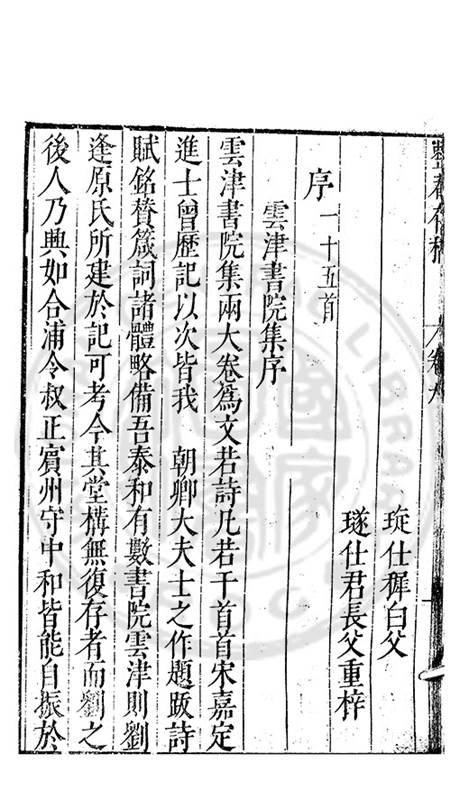 整菴存稿 卷九
琁仕穉白父
璲仕君長父重梓
序一十五首
雲津書院集序
雲津書院集兩大卷爲文若詩凡若干首首宋嘉定
進士曾歷記以次皆我 朝卿大夫士之作題跋詩
賦銘贊箴詞諸體略備吾泰和有數書院雲津則劉
逢原氏所建於記可考今其堂構無復存者而劉之
後人乃興如合浦令叔正賓州守中和皆能自振於